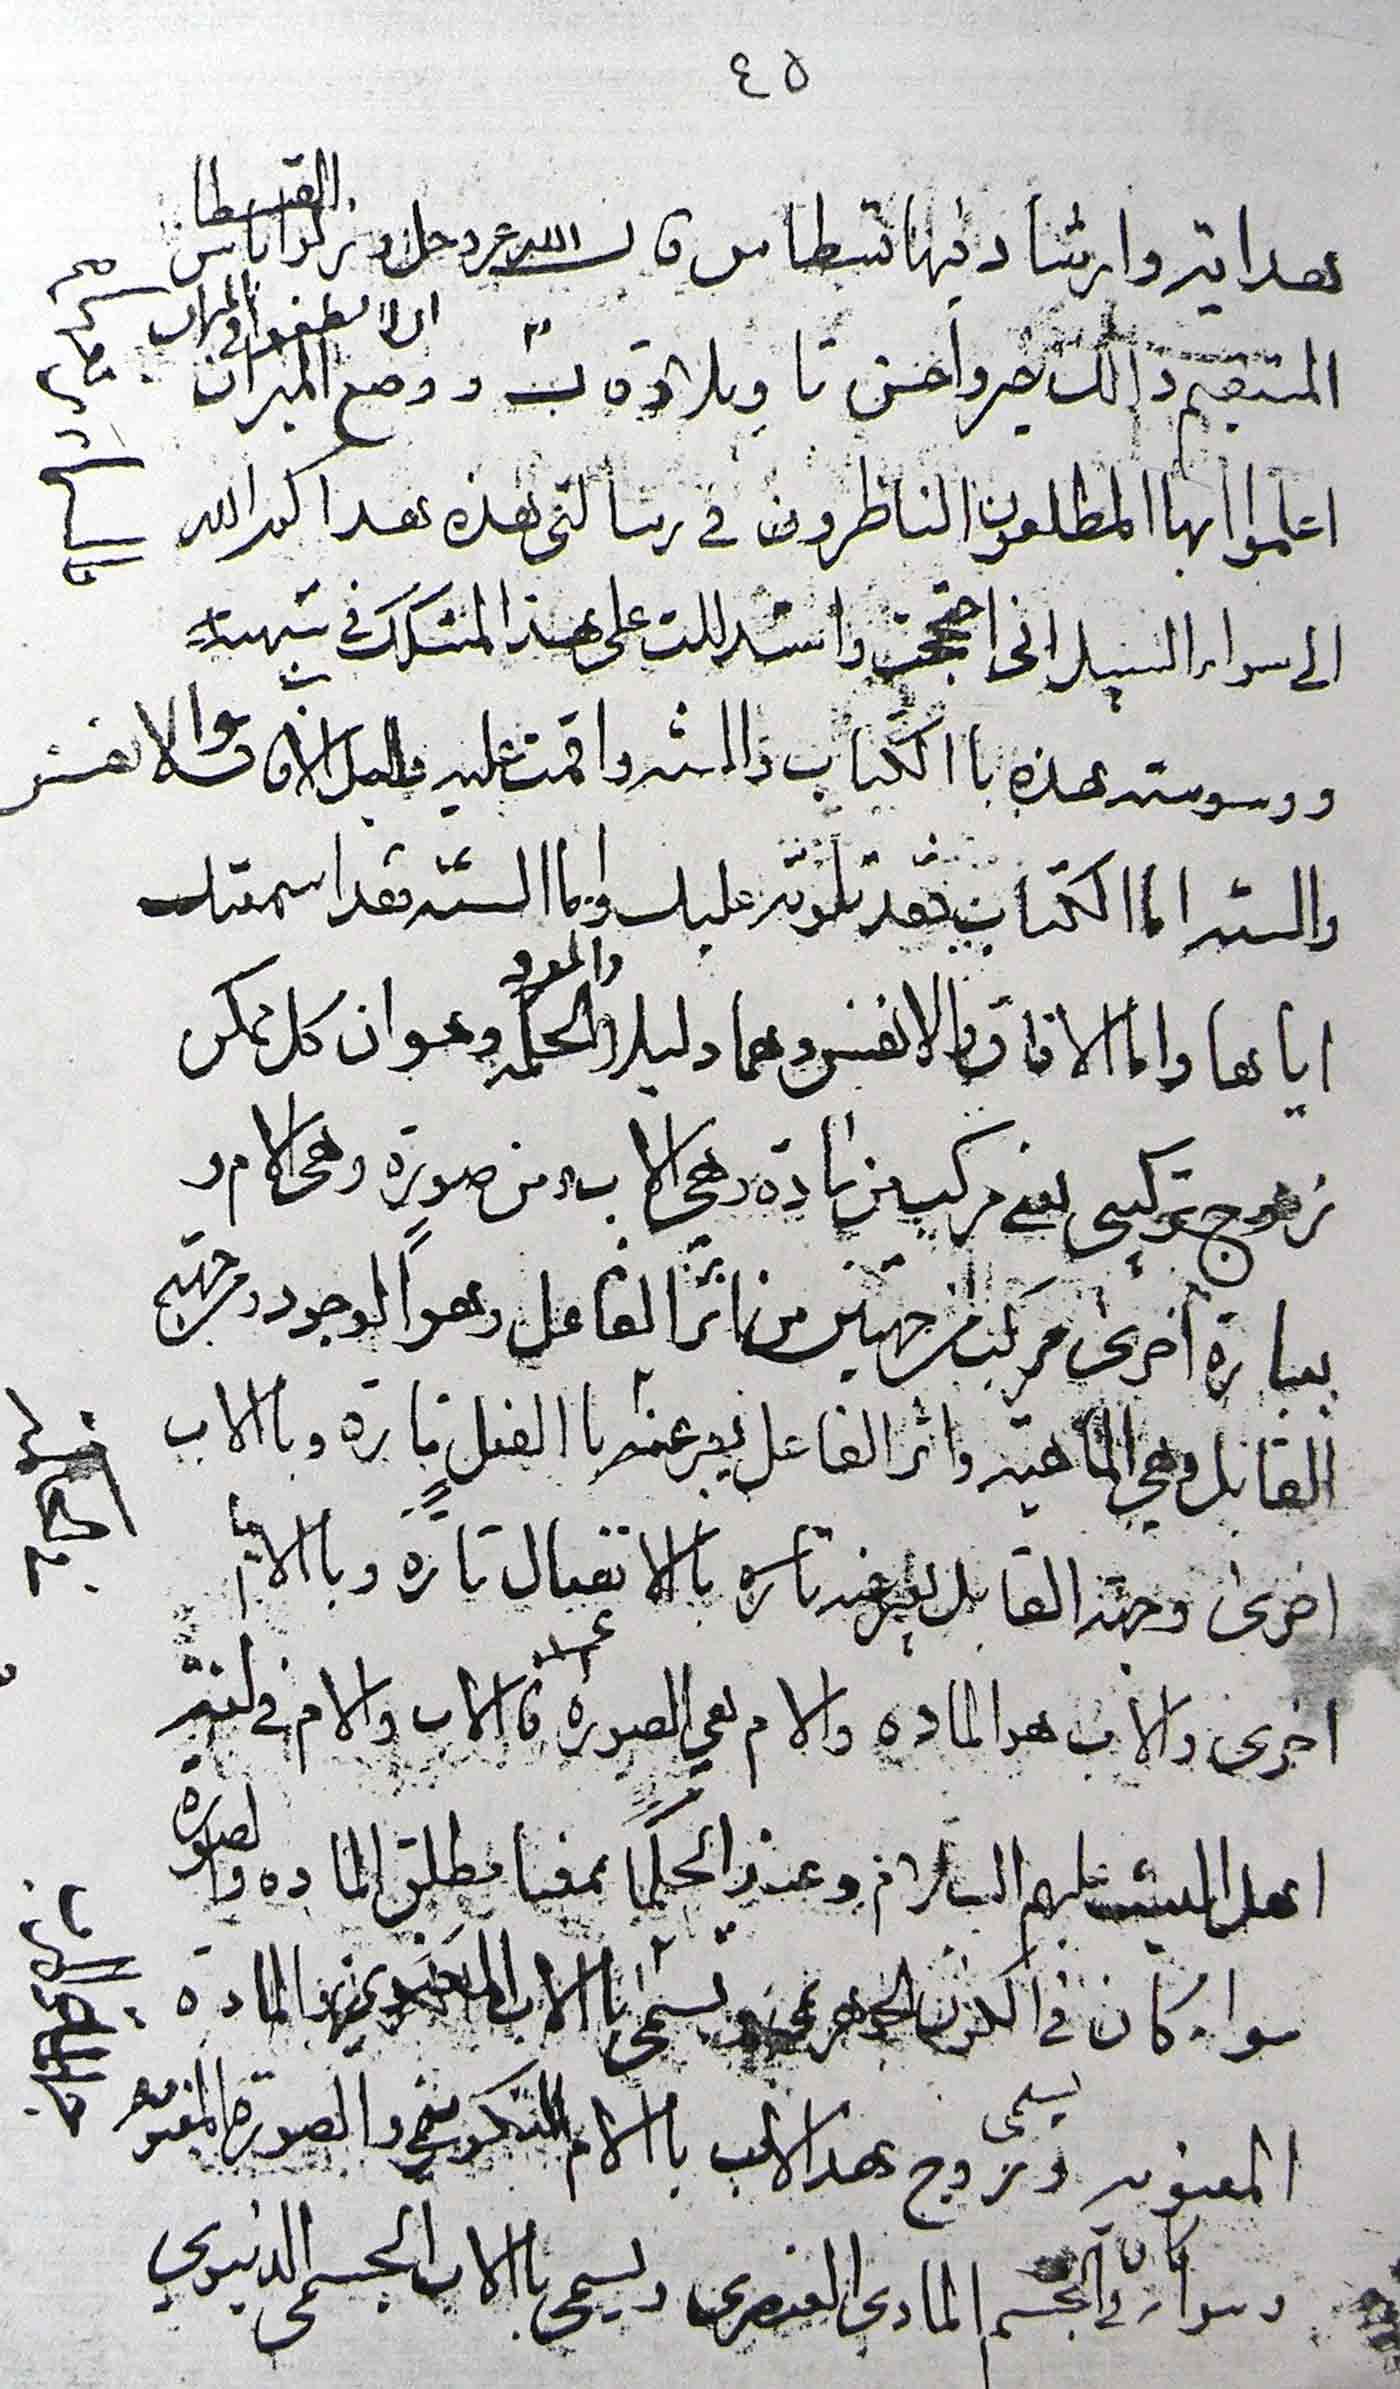 ٤٥
هداية وارشاد فيها قسطاس قال الله عز وجل وزنوا بالقسطاس
المستقيم ذالك خير وأحسن تاويلا وقال ووضع الميزان ان لا تطغوا في الميزان
اعلموا ايها المطلعون الناظرون في رسالتي هذه هداكم الله
الى سواء السبيل اني احتججت واستدللت على هذا المتشكك في شبهته
ووسوسته هذه باالكتاب والسنه واقمت عليه دليل الافاق والانفس
والسنه اما الكتاب فقد تلوته عليك واما السنه فقد اسمعتك
اياها واما الافاق والانفس وهما دليلا الحكمه وهو ان كل ممكن
زوج تركيبي يعني مركب من مادة وهي الاب ومن صورة وهي الام و
بعبارة أخرى مركب من جهتين من اثر الفاعل وهو الوجود ومن جهة
القابل وهي الماهية واثر الفاعل يعبر عنه باالفعل تارة وباالاب
اخرى وجهة القابل يعبر عنه تاره باالانفعال تارة وباالام
اخرى والاب هو الماده والام هي الصورة فاالاب والام في لغة
اهل البيت عليهم السلام وعند الحكما بمعنا مطلق الماده والصورة
سواء كان في الكون الجوهري ويسمى باالاب المعنوي والمادة
المعنويه وزوج هذ الاب يسمى باالام والصورة المعنويه
وسواء كان في الجسم المادي العنصري ويسمى باالاب الجسمي الدنيوي